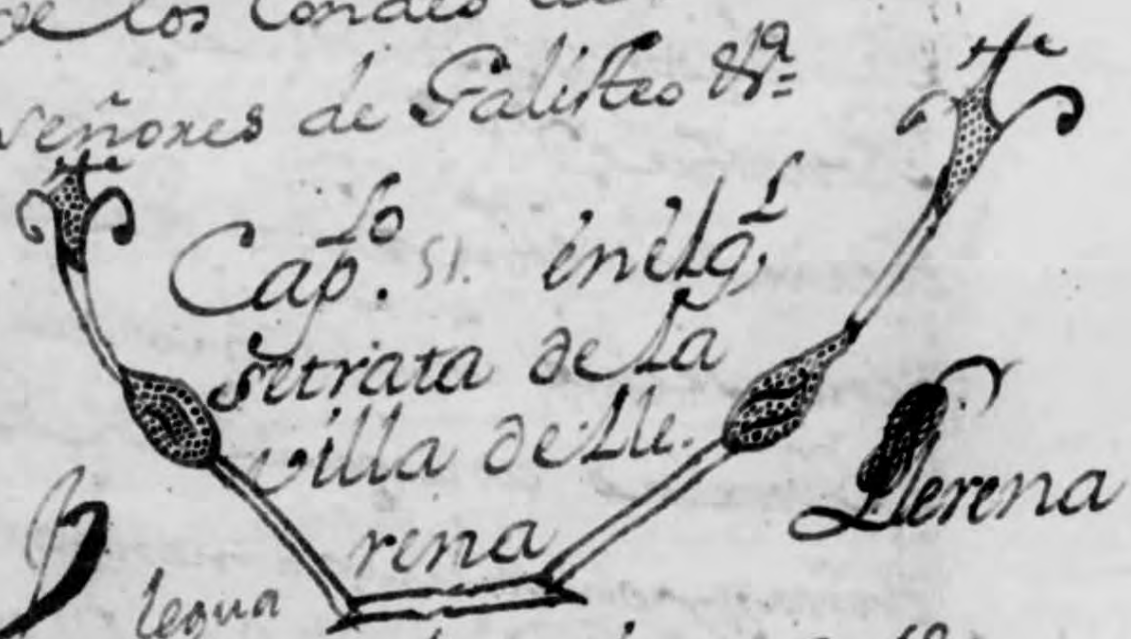 de los Condes de
señores de Galisteo &ª=
Cap.lo 51. en el q.l
se trata de la
villa de Lle.
rena
Llerena
legua